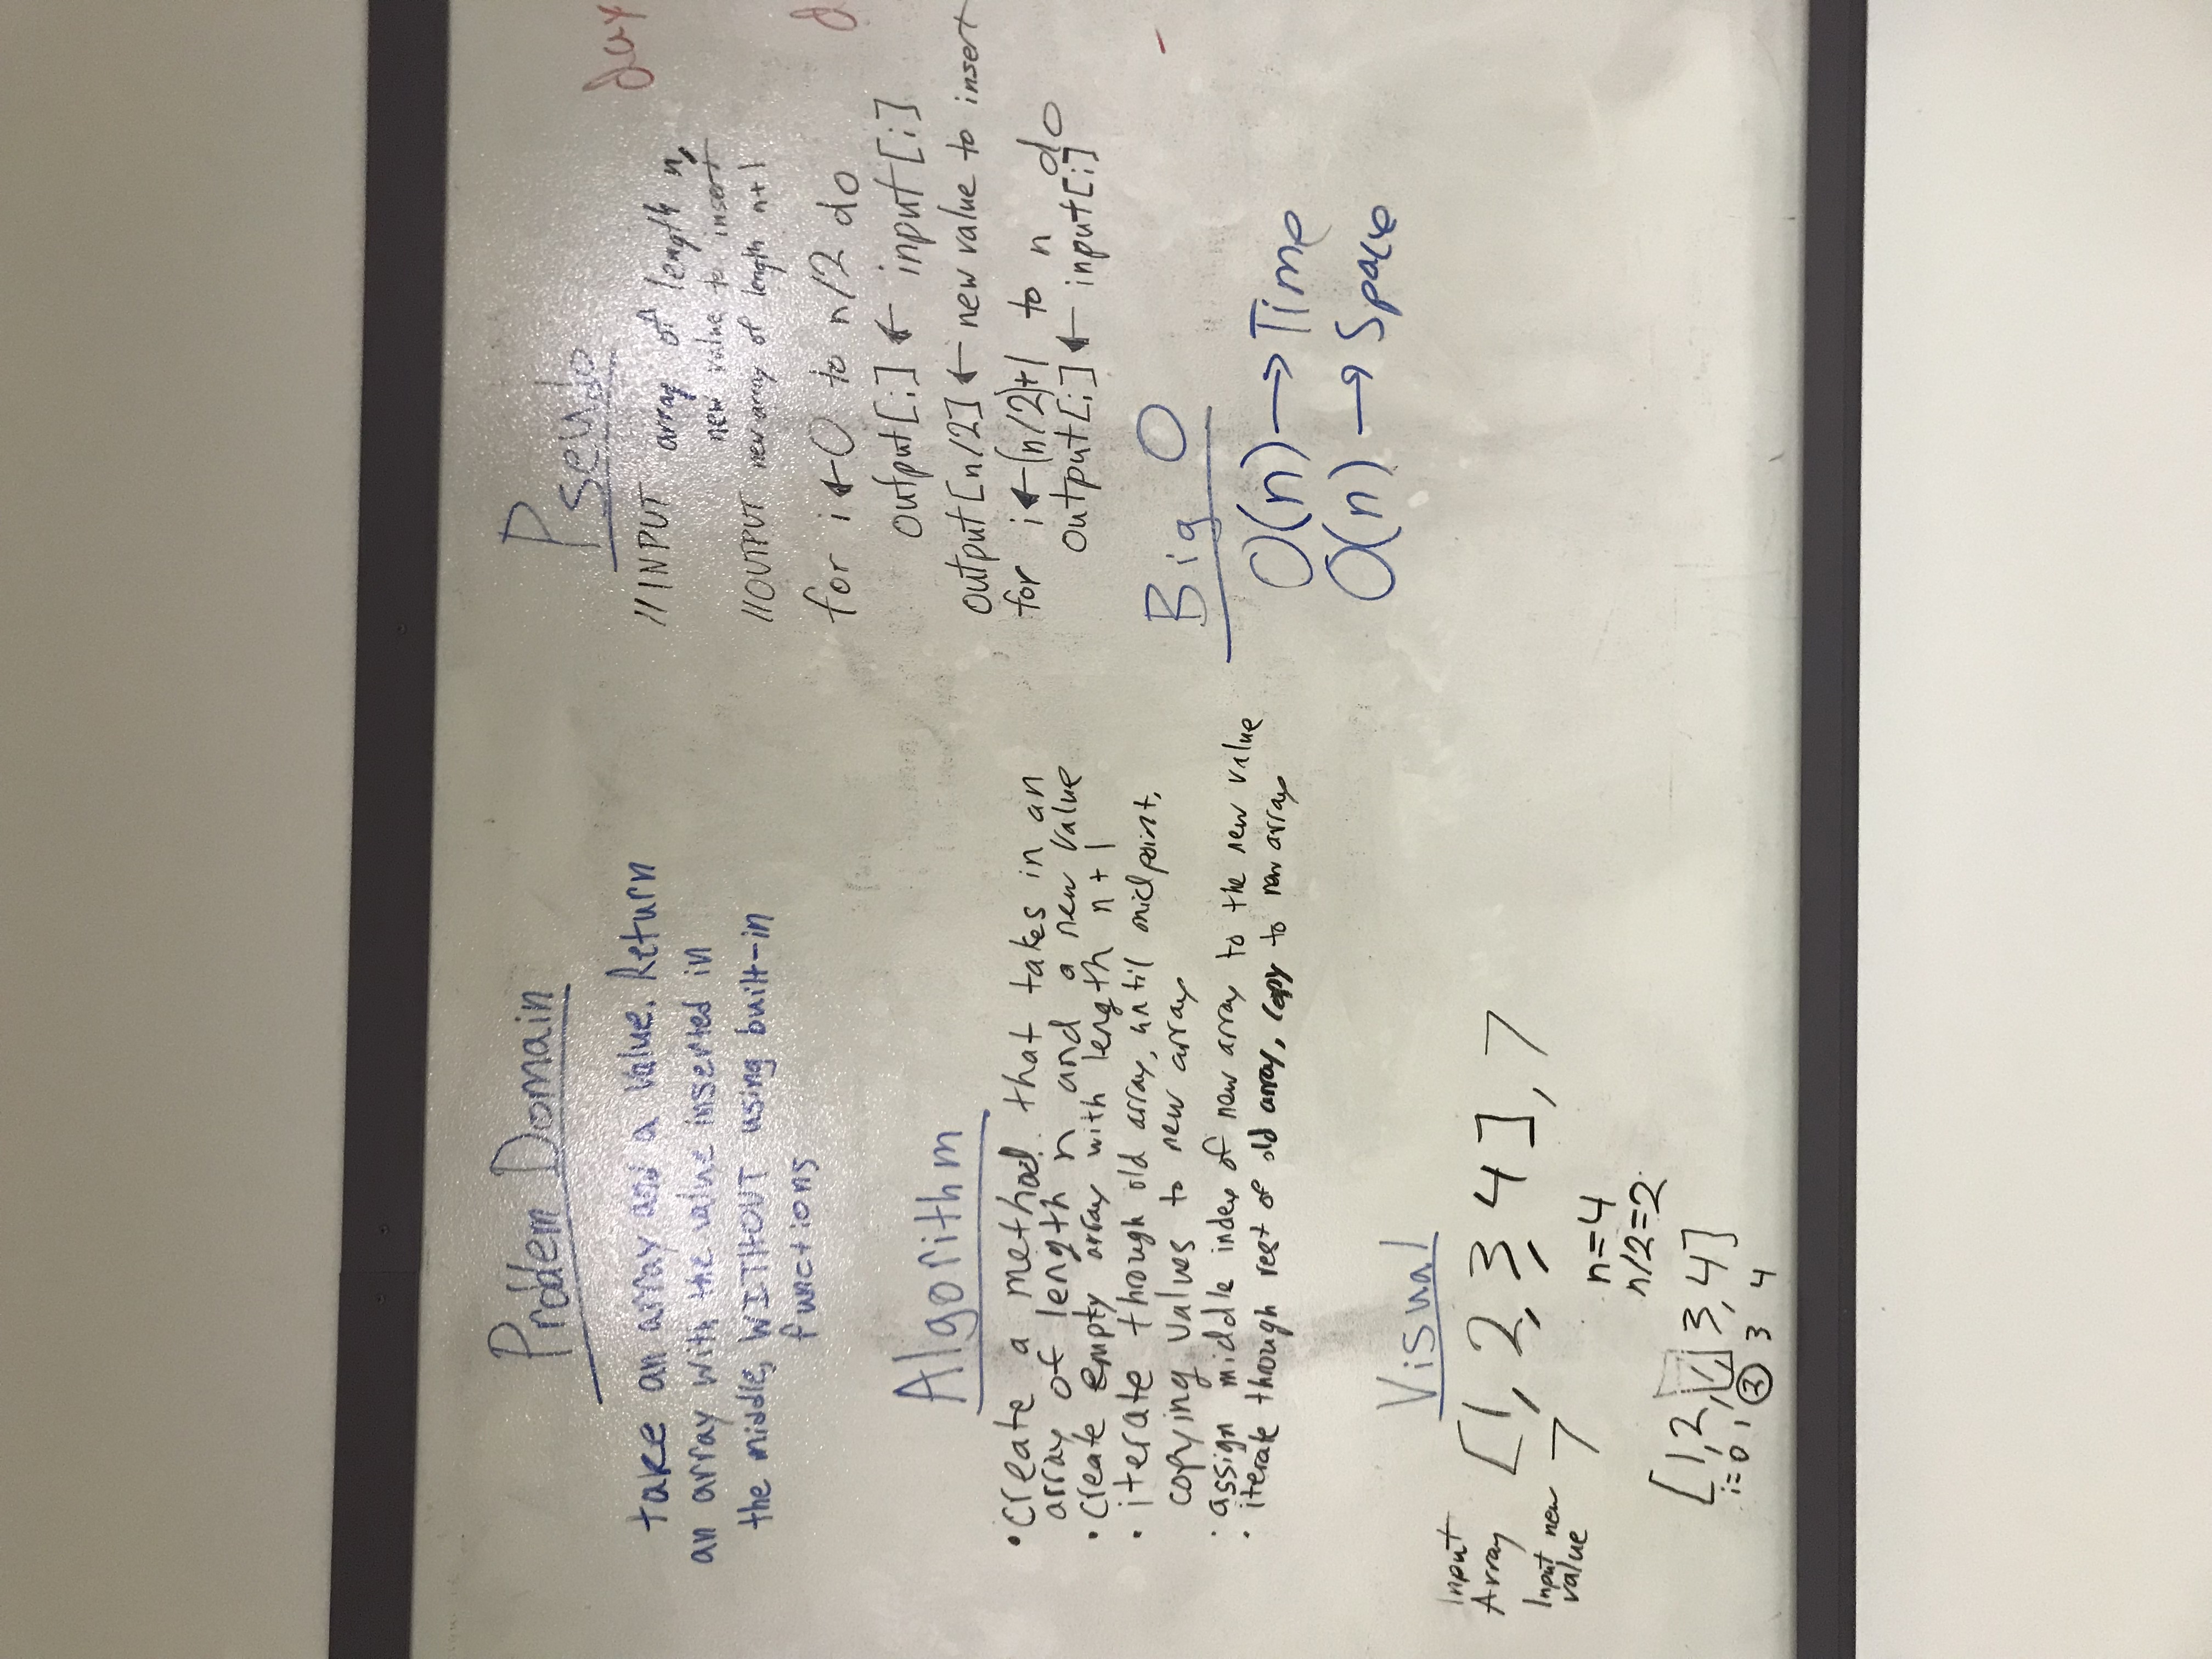 Problem Domain
take an array and a value. Return
an array with the value inserted in
the middle, WITHOUT using built-in
functions
Algorithm
• create a method that takes in an
array of length n and a new value
• create empty array with length n+1
• iterate through old array, until midpoint,
copying values to new array
• assign middle index of new array to the new value
• iterate through rest of old array, copy to new array
Visual
Input
Array [1, 2, 3, 4], 7
Input new
value 7
n=4
n/2=2
[1, 2, , 3, 4]
i=0 1 2 3 4
Pseudo
//INPUT array of length n,
new value to insert
//OUTPUT new array of length n+1
for i ← 0 to n/2 do
output[i] ← input[i]
output[n/2] ← new value to insert
for i ← (n/2)+1 to n do
output[i] ← input[i]
Big O
O(n) → Time
O(n) → Space